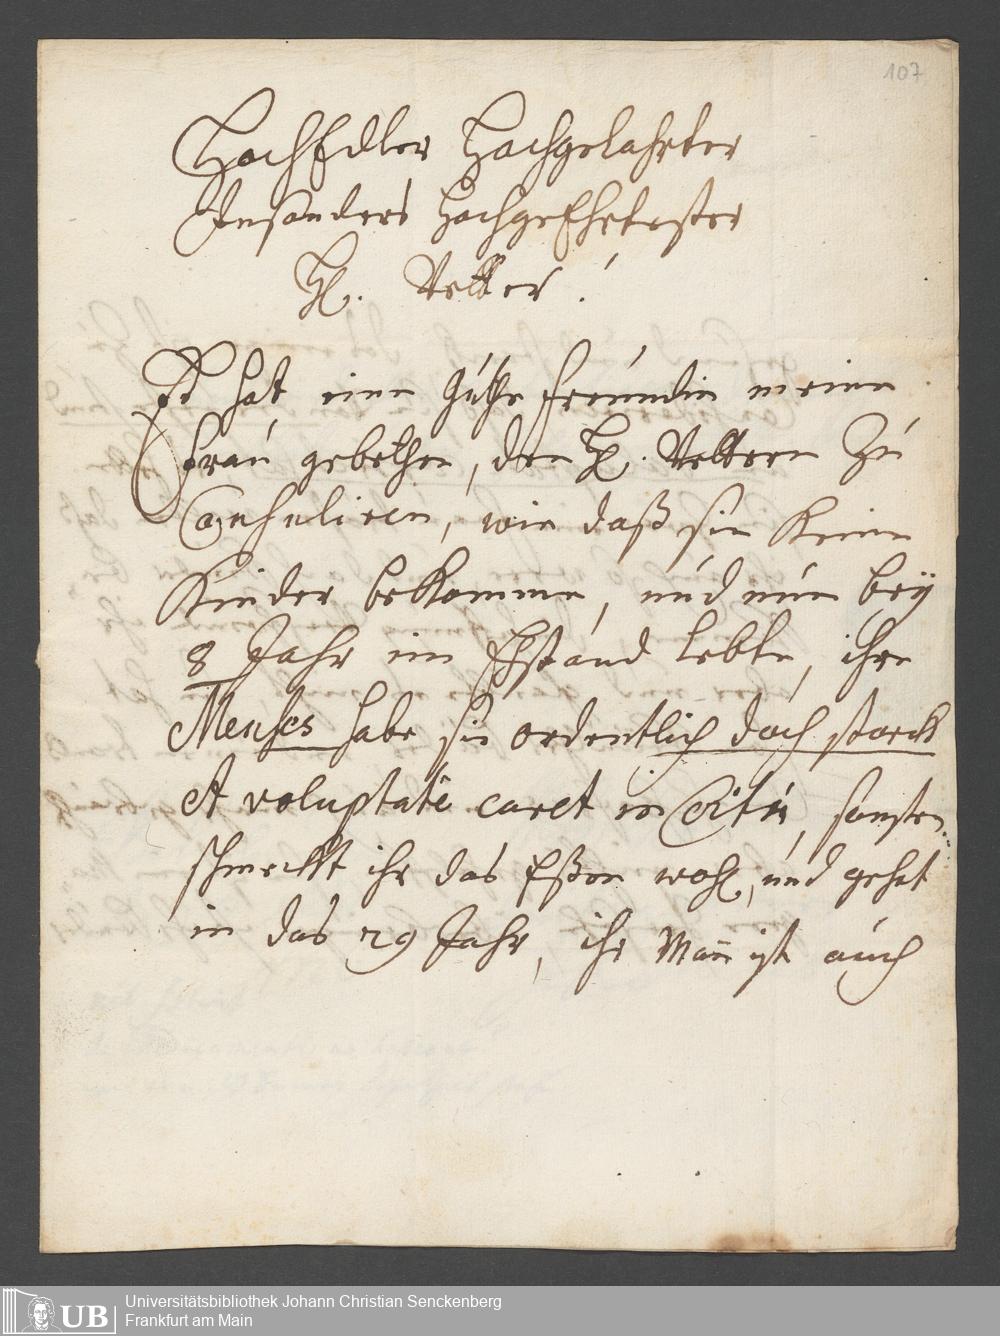 107
HochEdler Hochgelahrter
Insonders HochgeEhrtester
H. Vetter!
Es hat eine guthe freündin meine
frau gebethen, den H. Vettern zu
Consuliren, wie daß sie Keine
Kinder beKomme, und nun beÿ
8 Jahr im Ehstand lebte, ihre
Menses habe sie ordentlich doch starck
et voluptate caret in Coitu, sonsten
schmeckt ihr das Eßen wohl, und gehet
in das 29 Jahr, ihr Mann ist auch
UB
Universitätsbibliothek Johann Christian Senckenberg
Frankfurt am Main